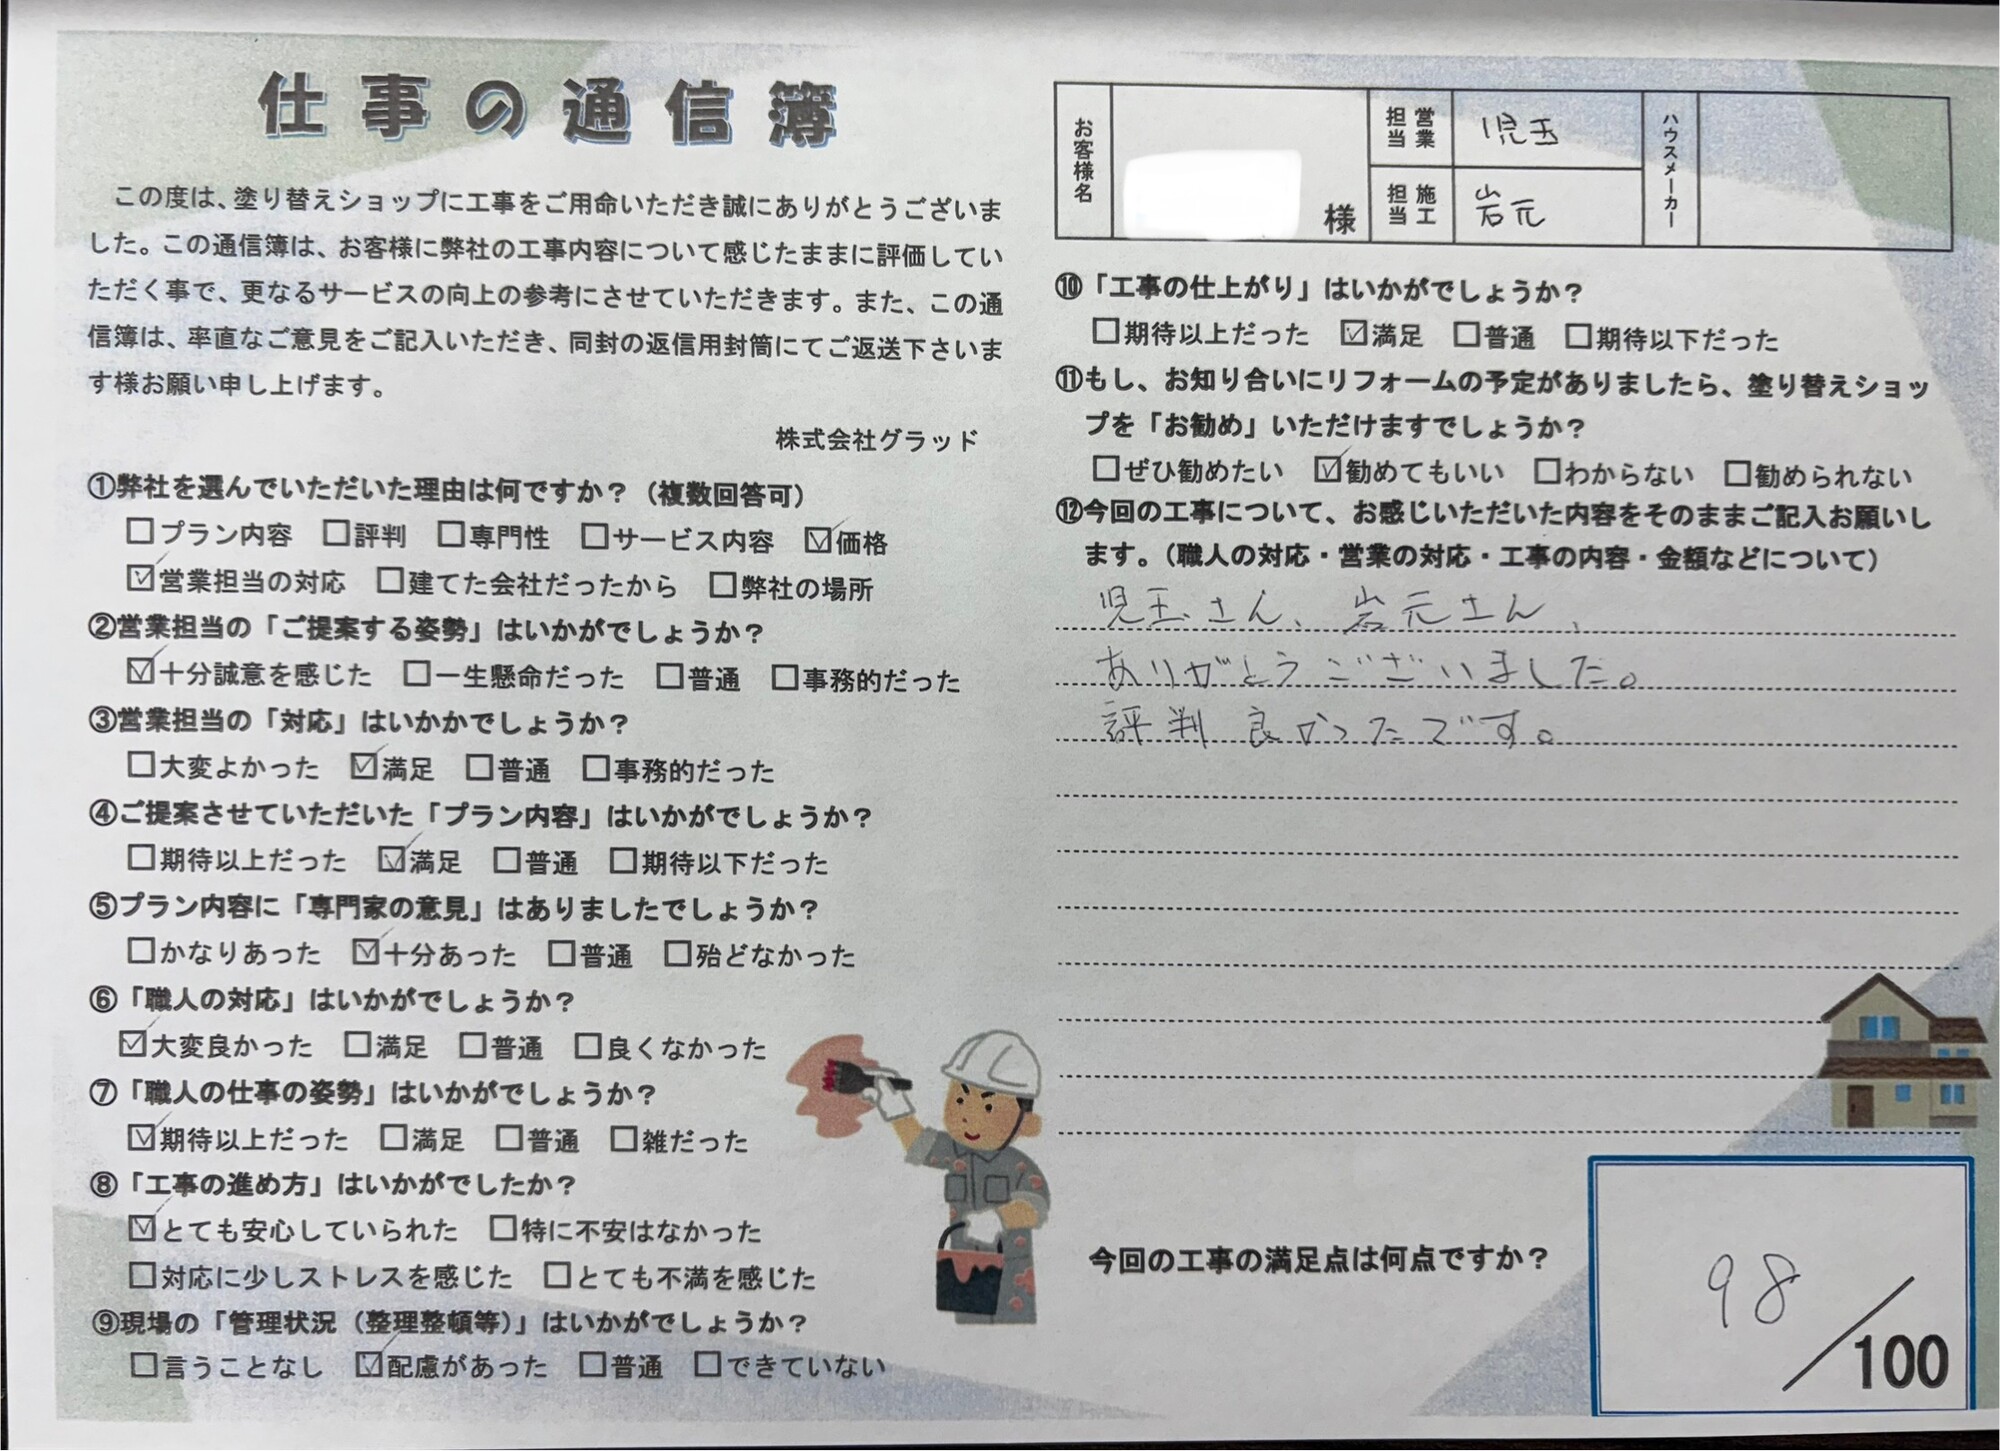 仕事の通信簿
この度は、塗り替えショップに工事をご用命いただき誠にありがとうございま
した。この通信簿は、お客様に弊社の工事内容について感じたままに評価してい
ただく事で、更なるサービスの向上の参考にさせていただきます。また、この通
信簿は、率直なご意見をご記入いただき、同封の返信用封筒にてご返送下さいま
す様お願い申し上げます。
株式会社グラッド
①弊社を選んでいただいた理由は何ですか？（複数回答可）
□プラン内容 □評判 □専門性 □サービス内容 ☑価格
☑営業担当の対応 □建てた会社だったから □弊社の場所
②営業担当の「ご提案する姿勢」はいかがでしょうか？
☑十分誠意を感じた □一生懸命だった □普通 □事務的だった
③営業担当の「対応」はいかかでしょうか？
□大変よかった ☑満足 □普通 □事務的だった
④ご提案させていただいた「プラン内容」はいかがでしょうか？
□期待以上だった ☑満足 □普通 □期待以下だった
⑤プラン内容に「専門家の意見」はありましたでしょうか？
□かなりあった ☑十分あった □普通 □殆どなかった
⑥「職人の対応」はいかがでしょうか？
☑大変良かった □満足 □普通 □良くなかった
⑦「職人の仕事の姿勢」はいかがでしょうか？
☑期待以上だった □満足 □普通 □雑だった
⑧「工事の進め方」はいかがでしたか？
☑とても安心していられた □特に不安はなかった
□対応に少しストレスを感じた □とても不満を感じた
⑨現場の「管理状況（整理整頓等）」はいかがでしょうか？
□言うことなし ☑配慮があった □普通 □できていない
お客様名 様 営業担当 児玉 ハウスメーカー
施工担当 岩元
⑩「工事の仕上がり」はいかがでしょうか？
□期待以上だった ☑満足 □普通 □期待以下だった
⑪もし、お知り合いにリフォームの予定がありましたら、塗り替えショッ
プを「お勧め」いただけますでしょうか？
□ぜひ勧めたい ☑勧めてもいい □わからない □勧められない
⑫今回の工事について、お感じいただいた内容をそのままご記入お願いし
ます。（職人の対応・営業の対応・工事の内容・金額などについて）
児玉さん、岩元さん、
ありがとうございました。
評判良かったです。
今回の工事の満足点は何点ですか？
98／100